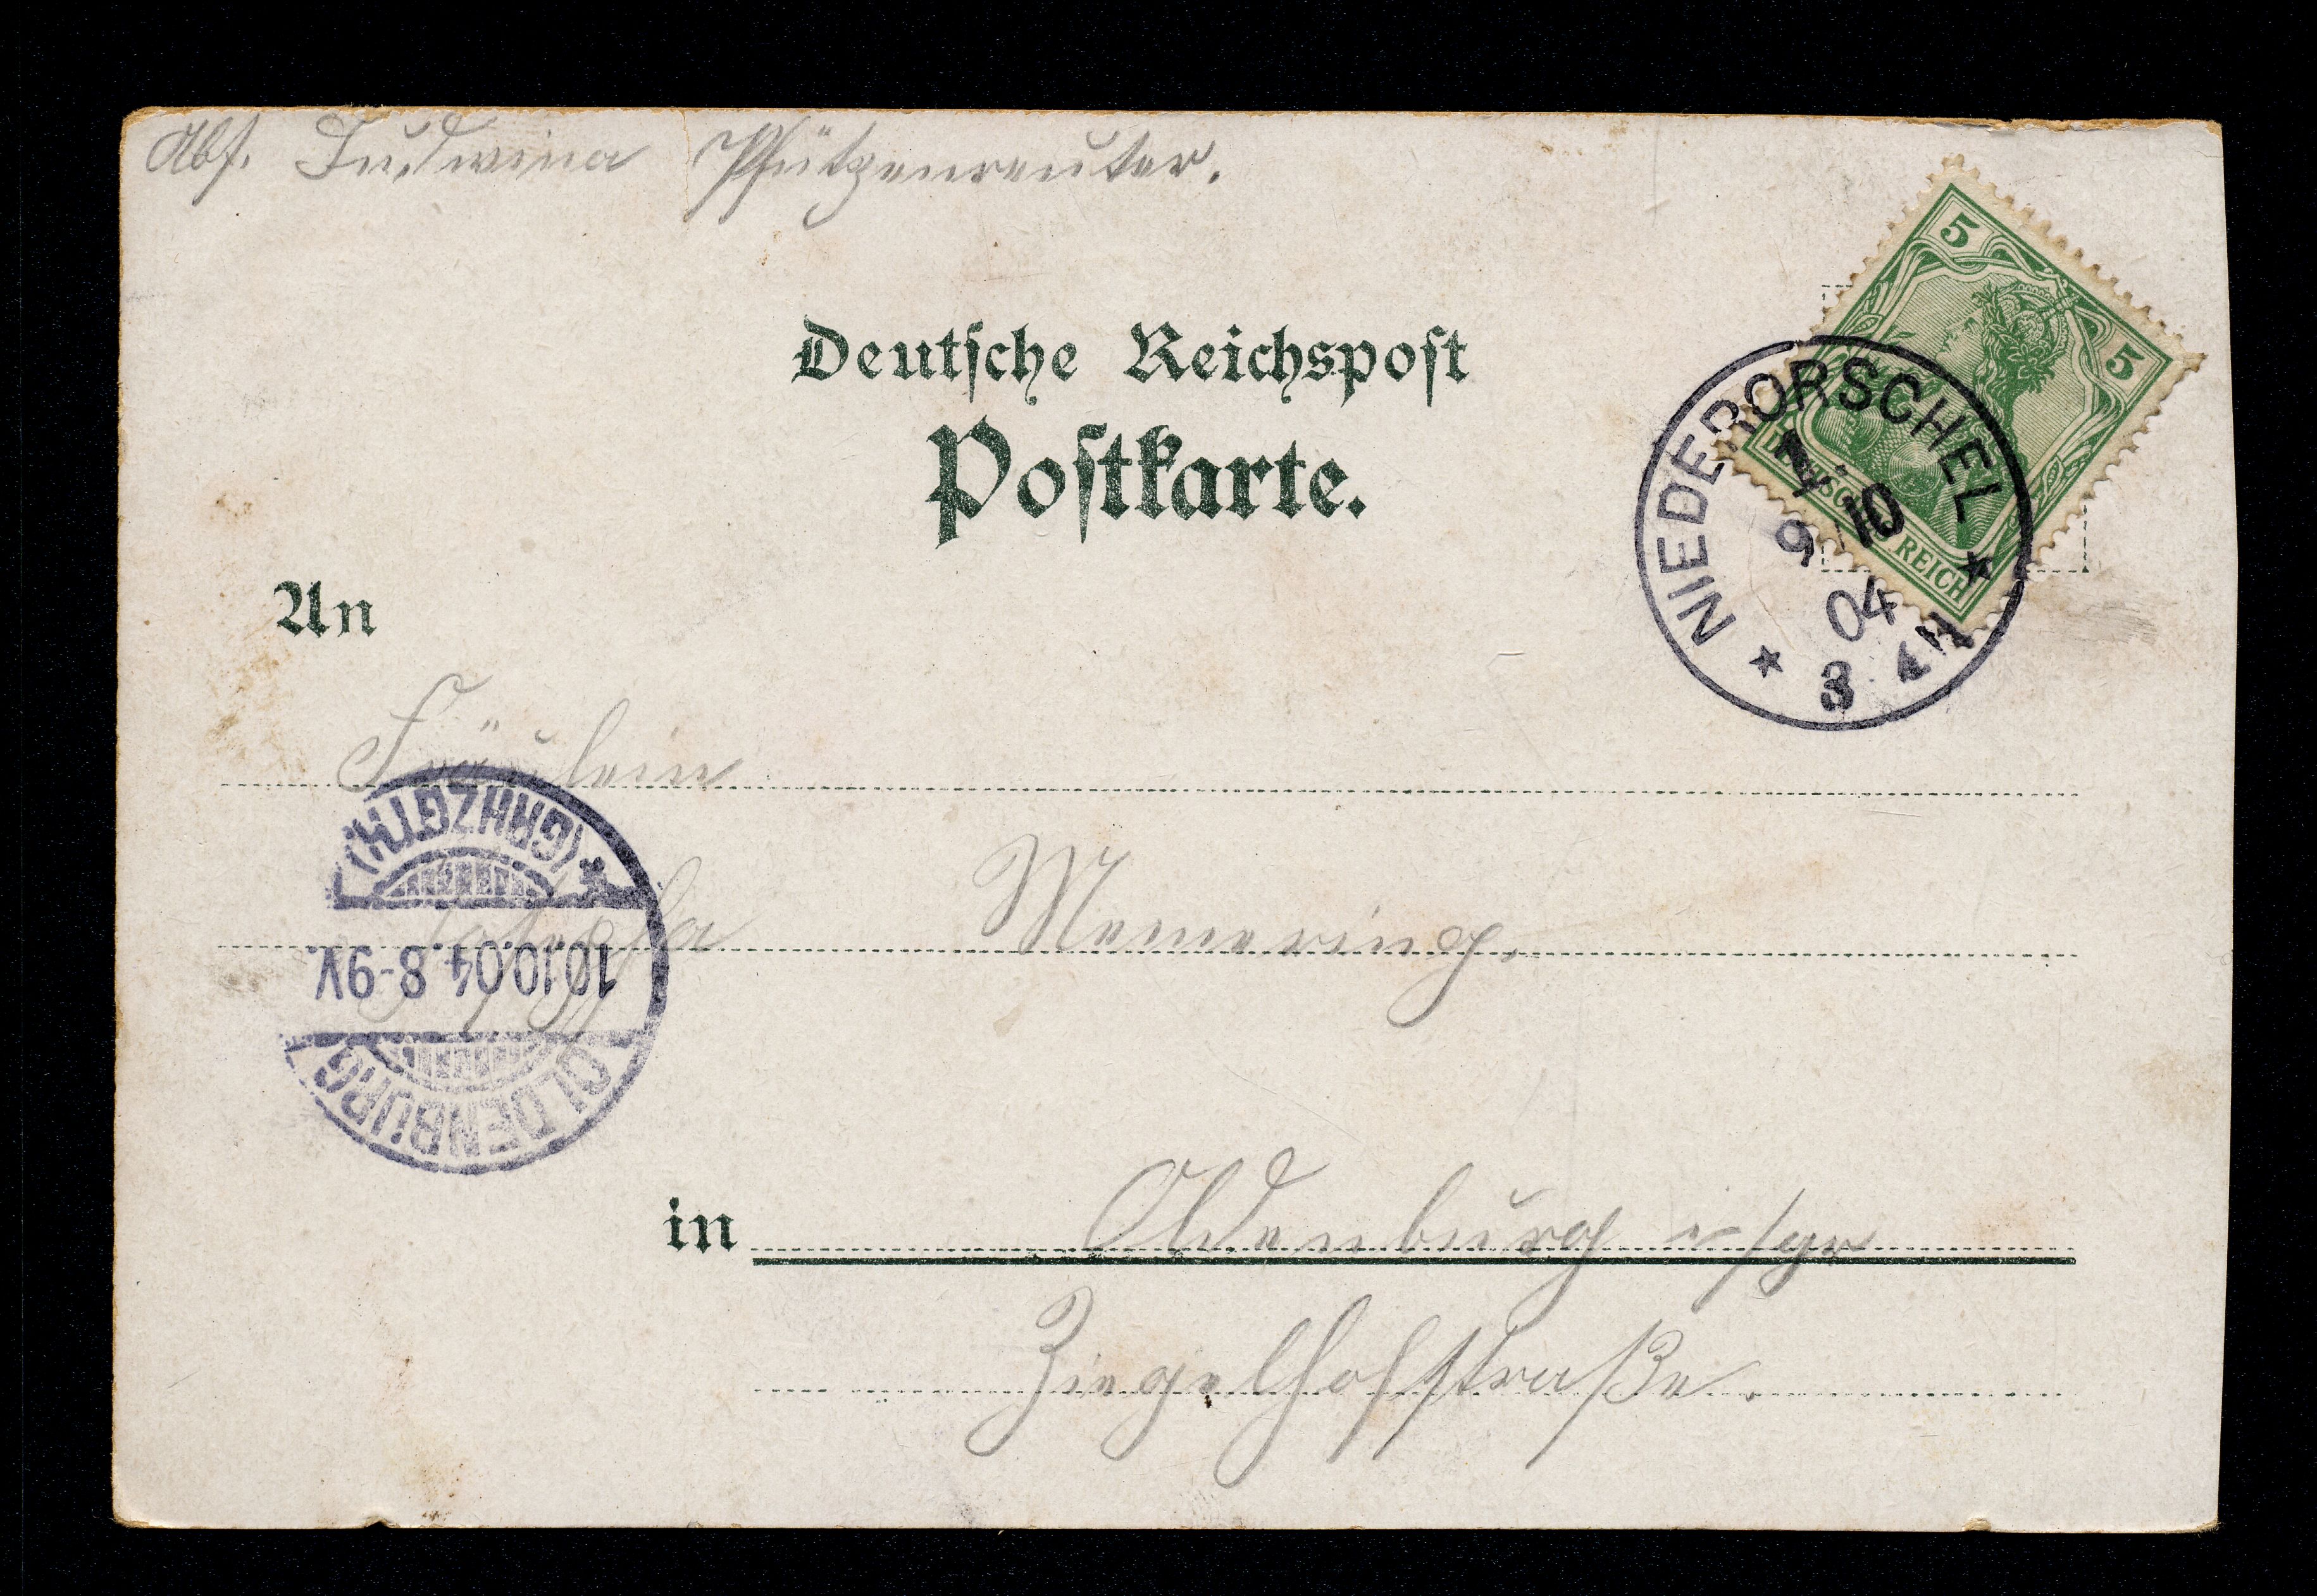 Abs. Ludwina Pfützenreuter.
5
5
DEUTSCHES REICH
Deutsche Reichspost
Postkarte.
NIEDERORSCHEL
9 10
04
3
An
Fräulein
Memering.
(GRHZGTH.)
10.10.04. 8-9V.
OLDENBURG
in Oldenburg i/gr
Ziegelhofstraße.